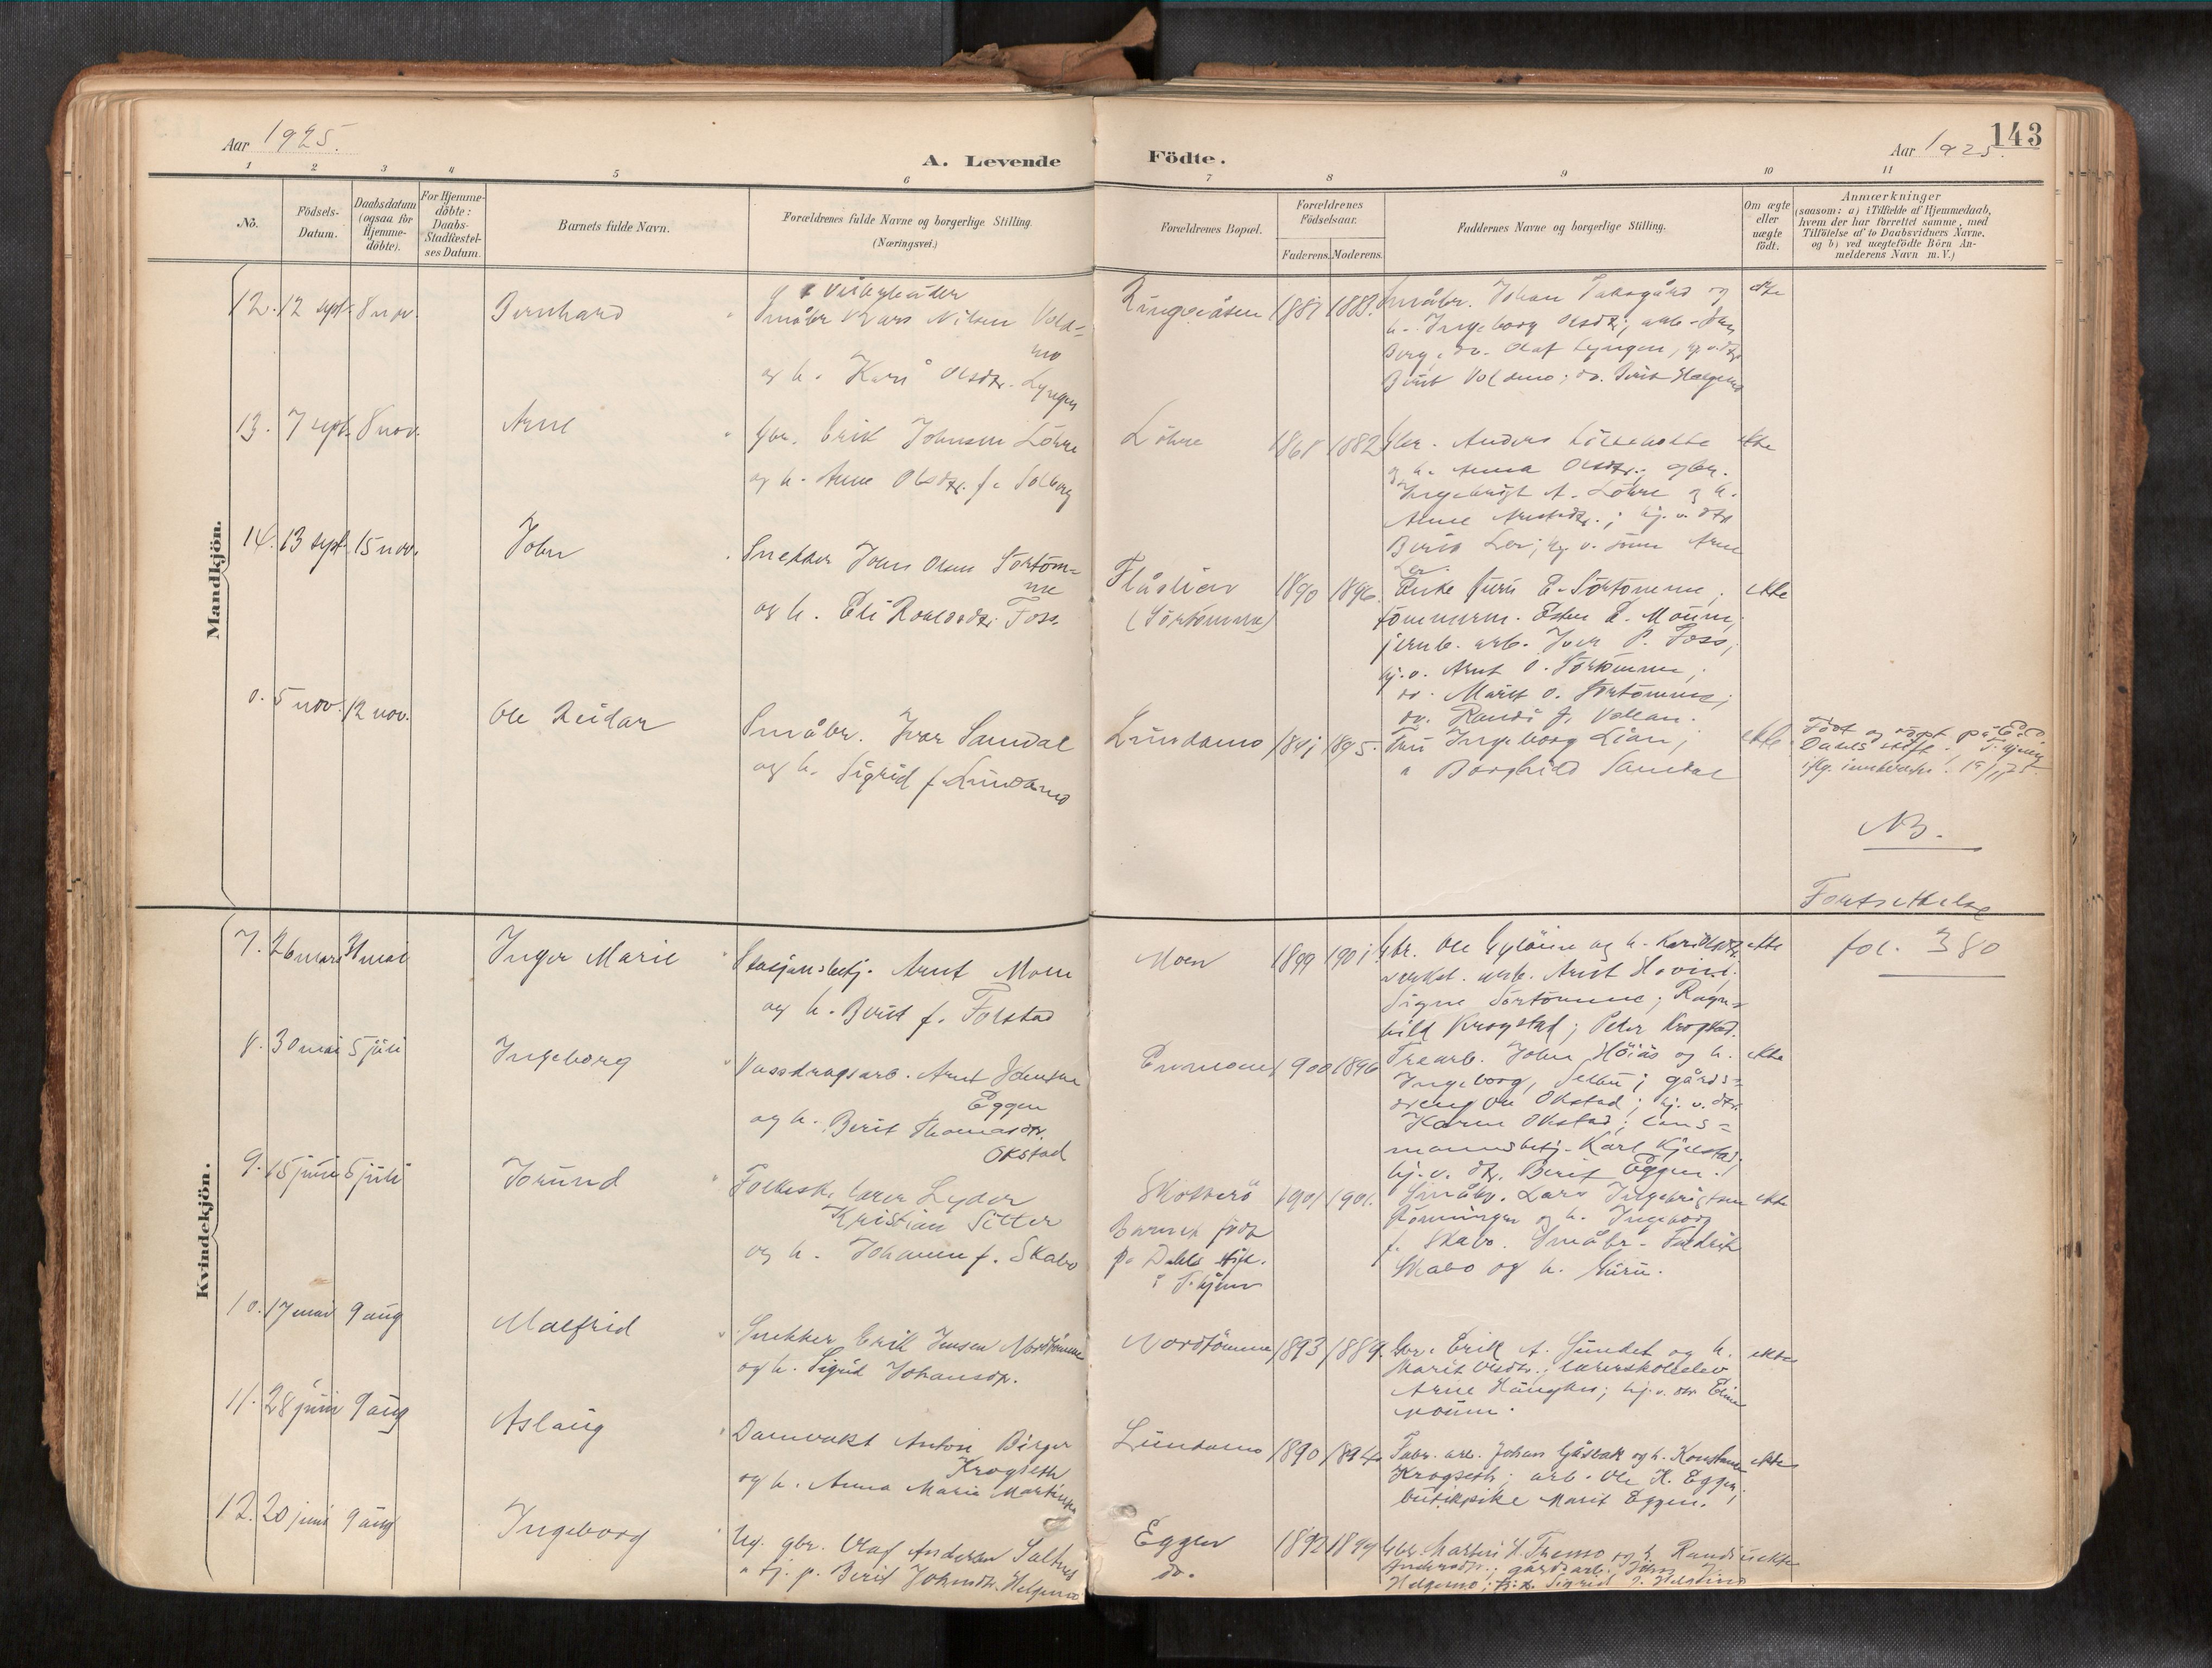 Aar 1925.
A. Levende
Födte.
Aar 1925.
143
1 2 3 4 5 6 7 8 9 10 11
No.
Födsels-
Datum.
Daabsdatum
(ogsaa for
Hjemme-
döbte).
For Hjemme-
döbte:
Daabs-
Stadfæstel-
ses Datum.
Barnets fulde Navn.
Forældrenes fulde Navne og borgerlige Stilling.
(Næringsvei.)
Forældrenes Bopæl.
Forældrenes
Födselsaar.
Faderens. Moderens.
Faddernes Navne og borgerlige Stilling.
Om ægte
eller
uægte
födt.
Anmærkninger
(saasom: a) i Tilfælde af Hjemmedaab,
hvem der har forrettet samme, med
Tilföielse af to Daabsvidners Navne,
og b) ved uægtefödte Börn An-
melderens Navn m. V.)
Mandkjön.
12. 12 sept. 8 nov. Bernhard
Småbr Lars Nilsen Vold=
mo
og h. Kari Olsdtr. Lyngen
Ringeråsen 1887 1883.
Småbr. Johan Taksgård og
h. Ingeborg Olsdtr; arb.
Berg, do. Olaf Lyngen,
Berit Voldmo; do. Berit Helgemo
ekte
13. 7 sept. 8 nov. Arne
Gbr. Erik Johnsen Löhre
og h. Anne Olsdtr. f. Solberg
Löhre 1868 1882
Gbr. Anders
og h. Anna Olsdtr.; gbr.
Ingebrigt A. Löhre og h.
Anne; hj. v. dtr
Berit Ler; hj. v. sönn Arne
Ler.
ekte
14. 13 sept. 15 nov. John
Snekker John Olsen Sörtöm=
me
og h. Eli Roaldsdtr. Foss
Flåslien
(Sörtömme)
1890 1896.
Enke Guru E. Sörtömme;
tömmerm. Esten E. Moum;
jernb. arb. Iver P. Foss;
hj. v. Arnt O. Sörtömme;
do. Marit O. Sörtömme;
do. Randi J. Vollan.
ekte
0. 5 nov. 12 nov. Ole Reidar
Småbr. Ivar Samdal
og h. Sigrid f. Lundamo
Lundamo 1895.
Fru Ingeborg Lian;
" Borghild Samdal
ekte.
Födt og döpt på E. C.
Dahls stift. T.hjem
iflg. innberetn. 19/11 25.
NB.
Fortsettelse
fol. 380
Kvindekjön.
7. 26 mars 31 mai Inger Marie
Stasjonsbetj. Arnt Moen
og h. Berit f. Folstad
Moen 1899 1901
Gbr. Ole og h. Kari Olsdtr.
verkst. arb. Arnt Hovin;
Signe Sörtömme; Ragn=
hild Krogstad; Peter Krogstad.
ekte
8. 30 mai 5 juli Ingeborg
Vassdragsarb. Arnt Johnsen
Eggen
og h. Berit Thomasdtr.
Okstad
Enmoen 1900 1896
Trearb. John Höiås og h.
Ingeborg, Selbu; gårds=
dreng Ole Okstad; hj. v. dtr.
Karen Okstad; lens=
mannsbetj. Karl Kjelstad;
hj. v. dtr. Berit Eggen.
ekte
9. 15 juni 5 juli Jorund
Folkesk. lærer Lyder
Kristian Sitter
og h. Johanne f. Skabo
Skotterö
Barnet födt
på Dahls stift.
i T.hjem
1901 1901.
Småbr. Lars Ingebrigtsen
Rönningen og h. Ingeborg
f. Skabo. Småbr. Fredrik
Skabo og h. Guru.
ekte
10. 17 mai 9 aug Malfrid
Snekker Erik Jensen Nordtömme
og h. Sigrid Johansdtr.
Nordtömme 1893 1889.
Gbr. Erik A. Sundet og h.
Marit Olsdtr.; lærerskoleelev
Arne Haugen; hj. v. dtr Eline
Moum.
ekte
11. 28 juni 9 aug Aslaug
Damvakt Anton Birger
Krogseth
og h. Anna Marie
Lundamo 1890 1894.
Fabr. arb. Johan Gåsbak og h. Konstanse
Krogseth; arb. Ole H. Eggen;
butikpike Marit Eggen.
ekte
12. 20 juni 9 aug Ingeborg
Ug. gbr. Olaf Andersen Saltnes
" tj. p. Berit Johnsdtr. Helgemo
Eggen
do.
1892 1899
Gbr. Martin H. Tremo og h. Randi
Andersdtr.; gårdsarb. John
Helgemo; Sigrid J. Helgemo
uekte